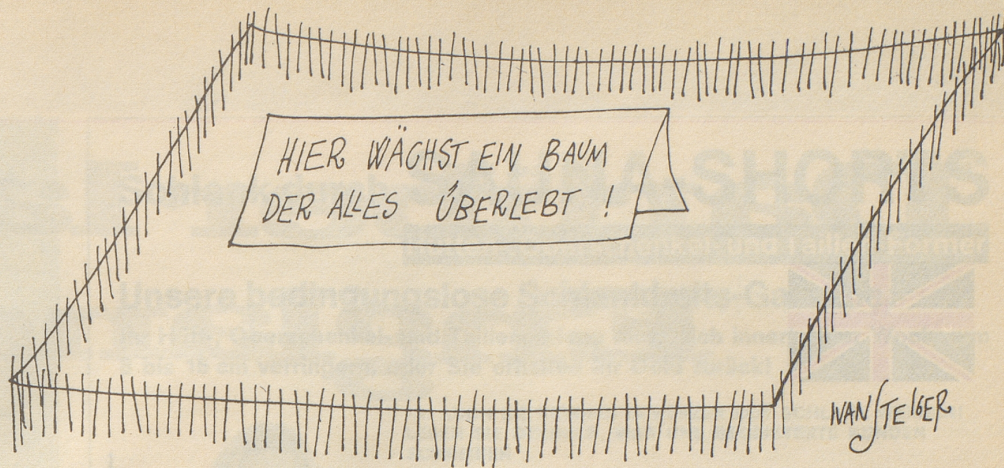 HIER WÄCHST EIN BAUM
DER ALLES ÜBERLEBT !
IVAN STEIGER